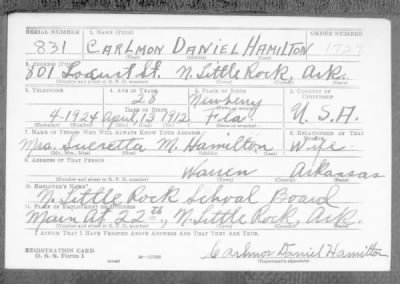 SERIAL NUMBER 1. NAME (Print) ORDER NUMBER
831 CARLMON DANIEL HAMILTON 1727
(First) (Middle) (Last)
2. ADDRESS (Print)
801 Locust St. N. Little Rock, Ark.
3. TELEPHONE 4. AGE IN YEARS 5. PLACE OF BIRTH 6. COUNTRY OF CITIZENSHIP
28 Newberry
DATE OF BIRTH
4-1924 April, 13 1912 Fla U.S.A.
7. NAME OF PERSON WHO WILL ALWAYS KNOW YOUR ADDRESS 8. RELATIONSHIP OF THAT PERSON
Mrs. Sueretta M. Hamilton Wife
(Mr., Mrs., Miss) (First) (Middle) (Last)
9. ADDRESS OF THAT PERSON
Warren Arkansas
(Number and street or R. F. D. number) (Town) (County) (State)
10. EMPLOYER'S NAME
N. Little Rock School Board
11. PLACE OF EMPLOYMENT OR BUSINESS
Main At 22th, N. Little Rock Ark.
(Number and street or R. F. D. number) (Town) (County) (State)
I AFFIRM THAT I HAVE VERIFIED ABOVE ANSWERS AND THAT THEY ARE TRUE.
REGISTRATION CARD
D. S. S. Form 1 Carlmon Daniel Hamilton
(Registrant's signature)